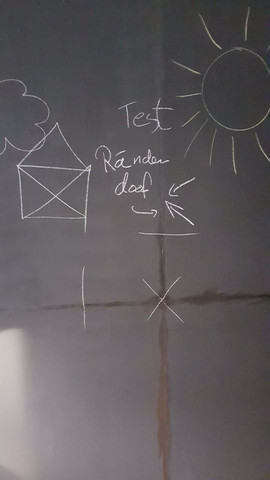 Test
Ränder
doof